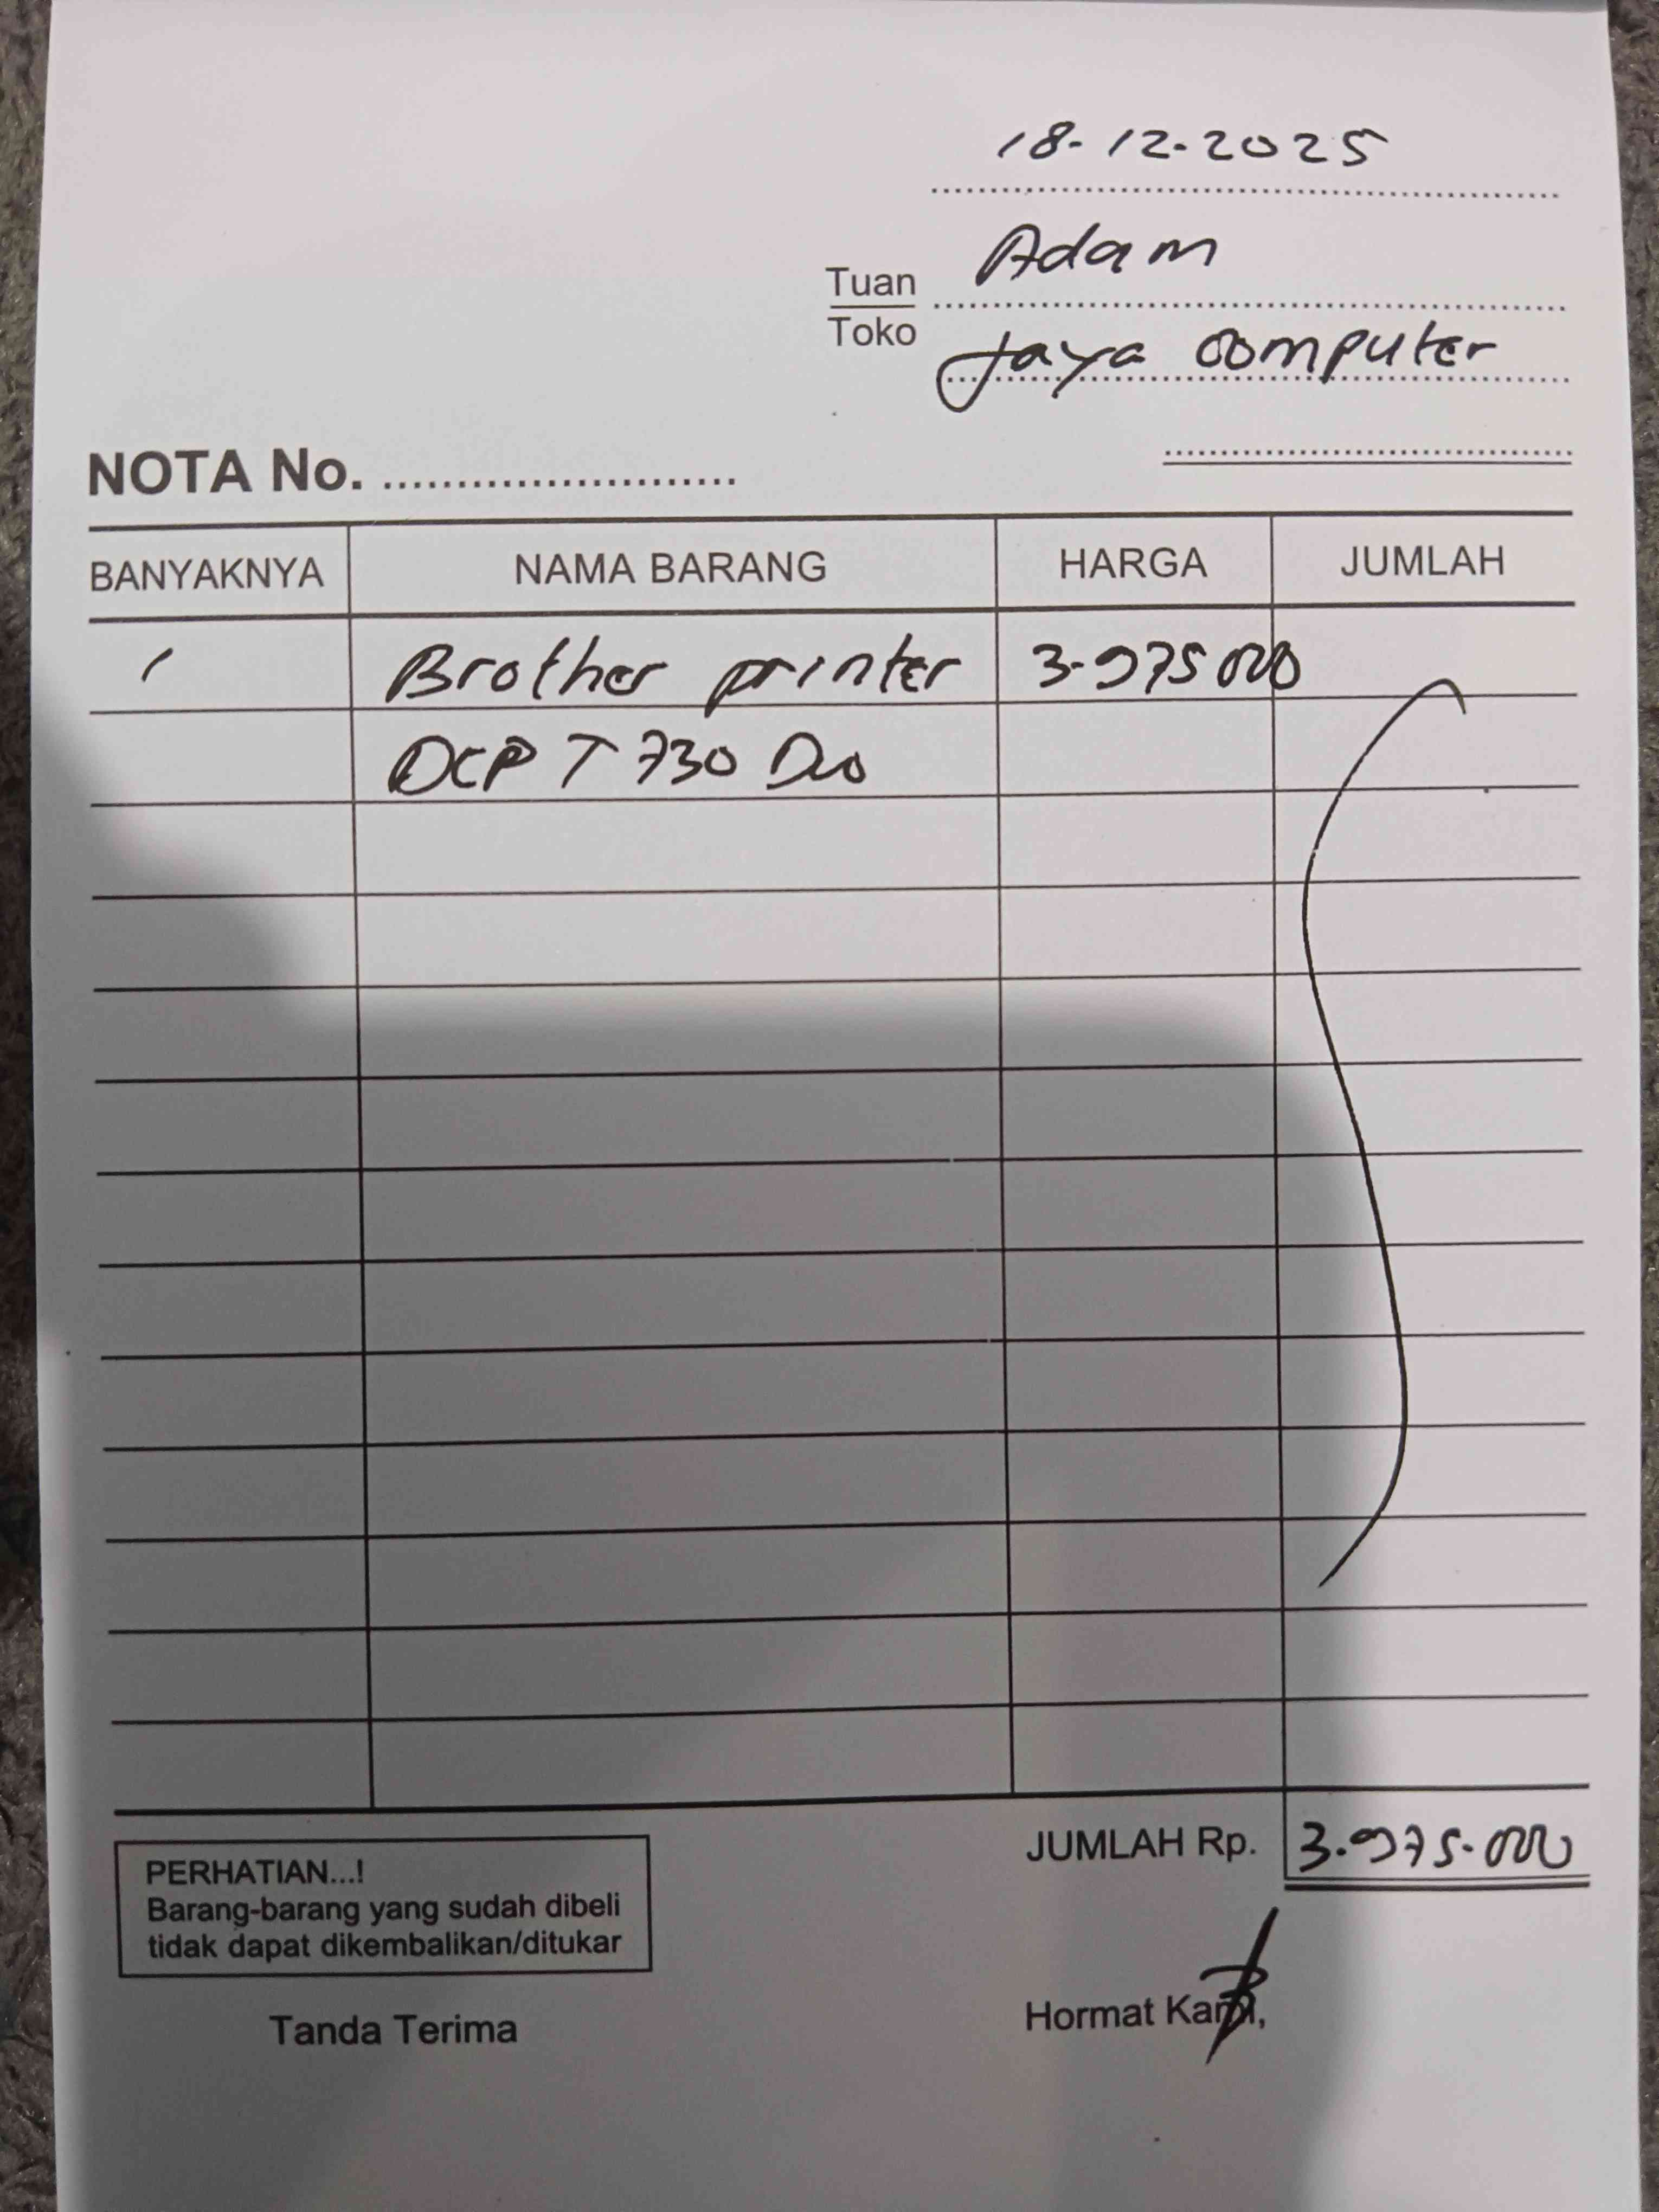 18-12-2025
Tuan Adam
Toko Jaya Computer
NOTA No. ........................
BANYAKNYA NAMA BARANG HARGA JUMLAH
1 Brother printer 3.975000
DCP T 730 Dw
JUMLAH Rp. 3.975.000
PERHATIAN...!
Barang-barang yang sudah dibeli
tidak dapat dikembalikan/ditukar
Tanda Terima Hormat Kami,